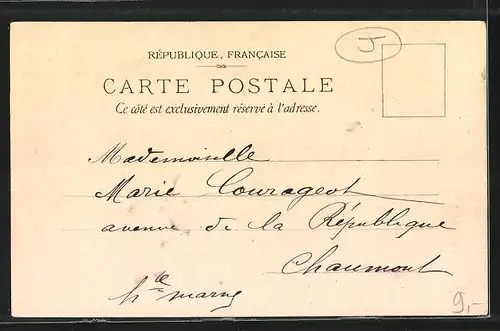 RÉPUBLIQUE, FRANÇAISE
CARTE POSTALE
Ce côté est exclusivement réservé à l'adresse.
Mademoiselle
Marie Courageot
avenue de la République
Chaumont
hte marne
9,-